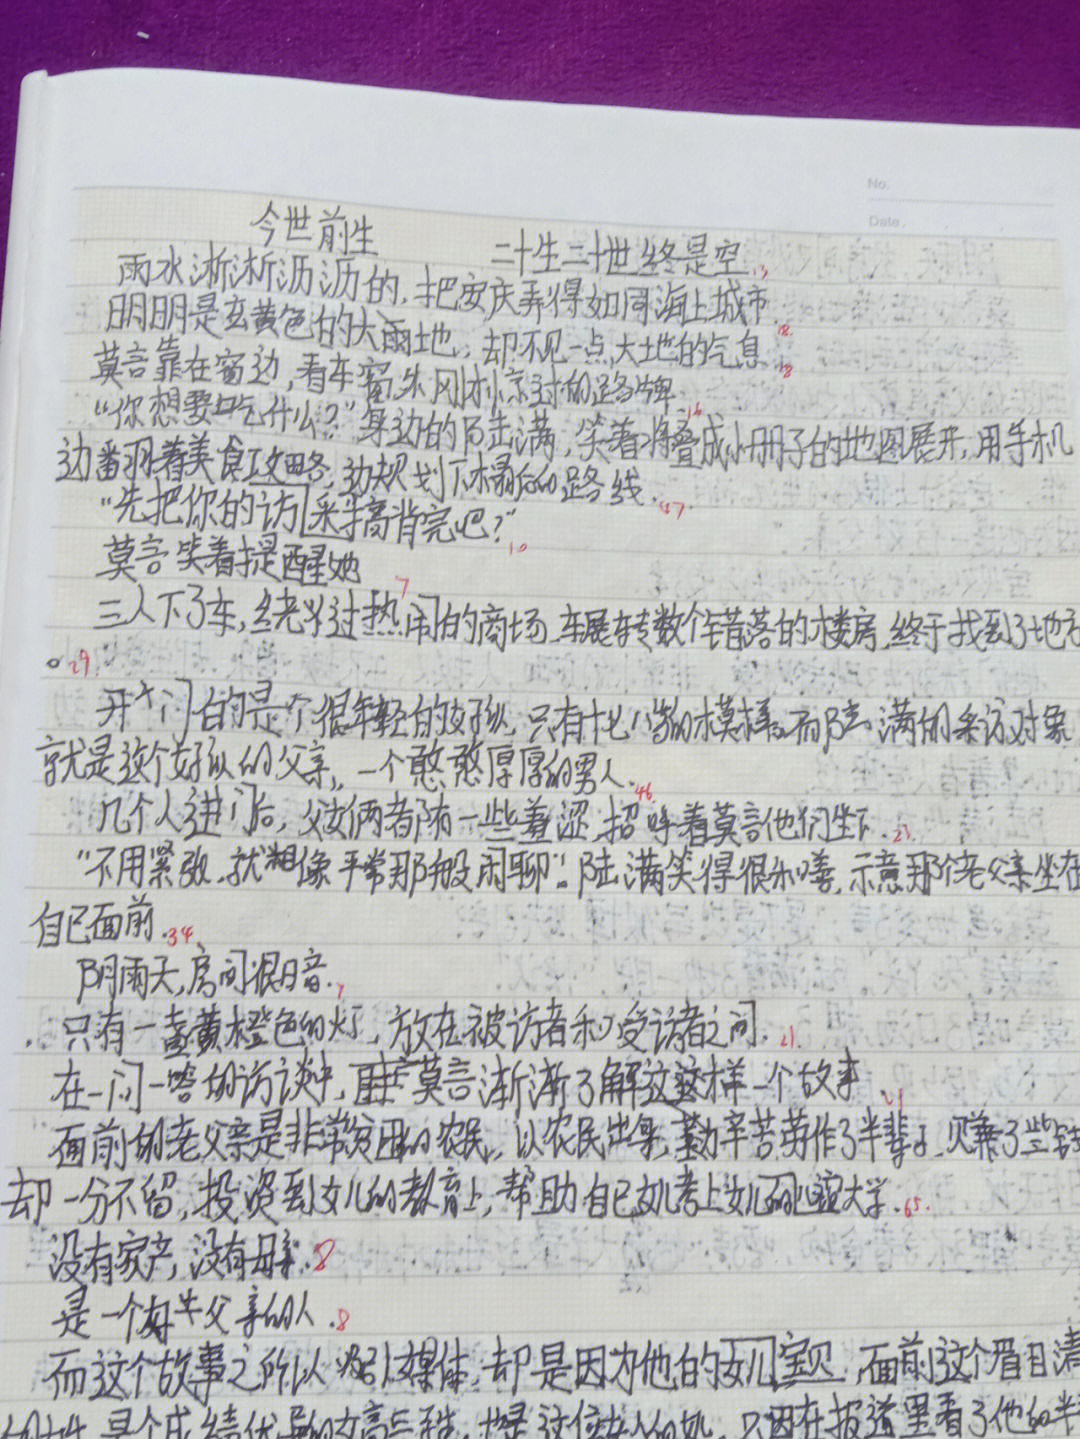 No.
Date.
今世前生 二十生二十世终是空 13
雨水淅淅沥沥的,把安庆弄得如同海上城市 18
明明是玄黄色的大雨地,却不见一点大地的气息 18
莫言靠在窗边,看车窗外刚刚京过的路牌 16
“你想要吃什么?”身边的陆满,笑着将叠成小册子的地图展开,用手机
边翻着美食攻略,边规划下榻后的路线. 47
“先把你的访采稿背完吧?” 10
莫言笑着提醒她 7
三人下了车,绕过热闹的商场 辗转数个错落的楼房,终于找到了地方
。29
开门的是个很年轻的女孩,只有十七八岁的模样,而陆满的采访对象
就是这个女孩的父亲,一个憨憨厚厚的男人. 46
几个人进门后,父女俩都有一些羞涩,招呼着莫言他们坐下. 23
“不用紧张,就想像平常那般闲聊”.陆满笑得很和善,示意那个老父亲坐在
自己面前. 34
阴雨天,房间很暗.
只有一盏黄橙色的灯,放在被访者和受访者之间. 21
在一问一答的访谈中,莫言渐渐了解这样一个故事 21
面前的老父亲是非常贫困的农民,以农民出身,勤辛苦劳作了半辈子,赚了些钱
却一分不留,投资到女儿的教育上,帮助自己女儿考上女儿的大学. 65.
没有家产,没有母亲. 8
是一个好父亲的人. 8
而这个故事之所以吸引媒体,却是因为他的女儿宝贝,面前这个眉目清
是个成绩优异的女高 只因在报道里看了他的半